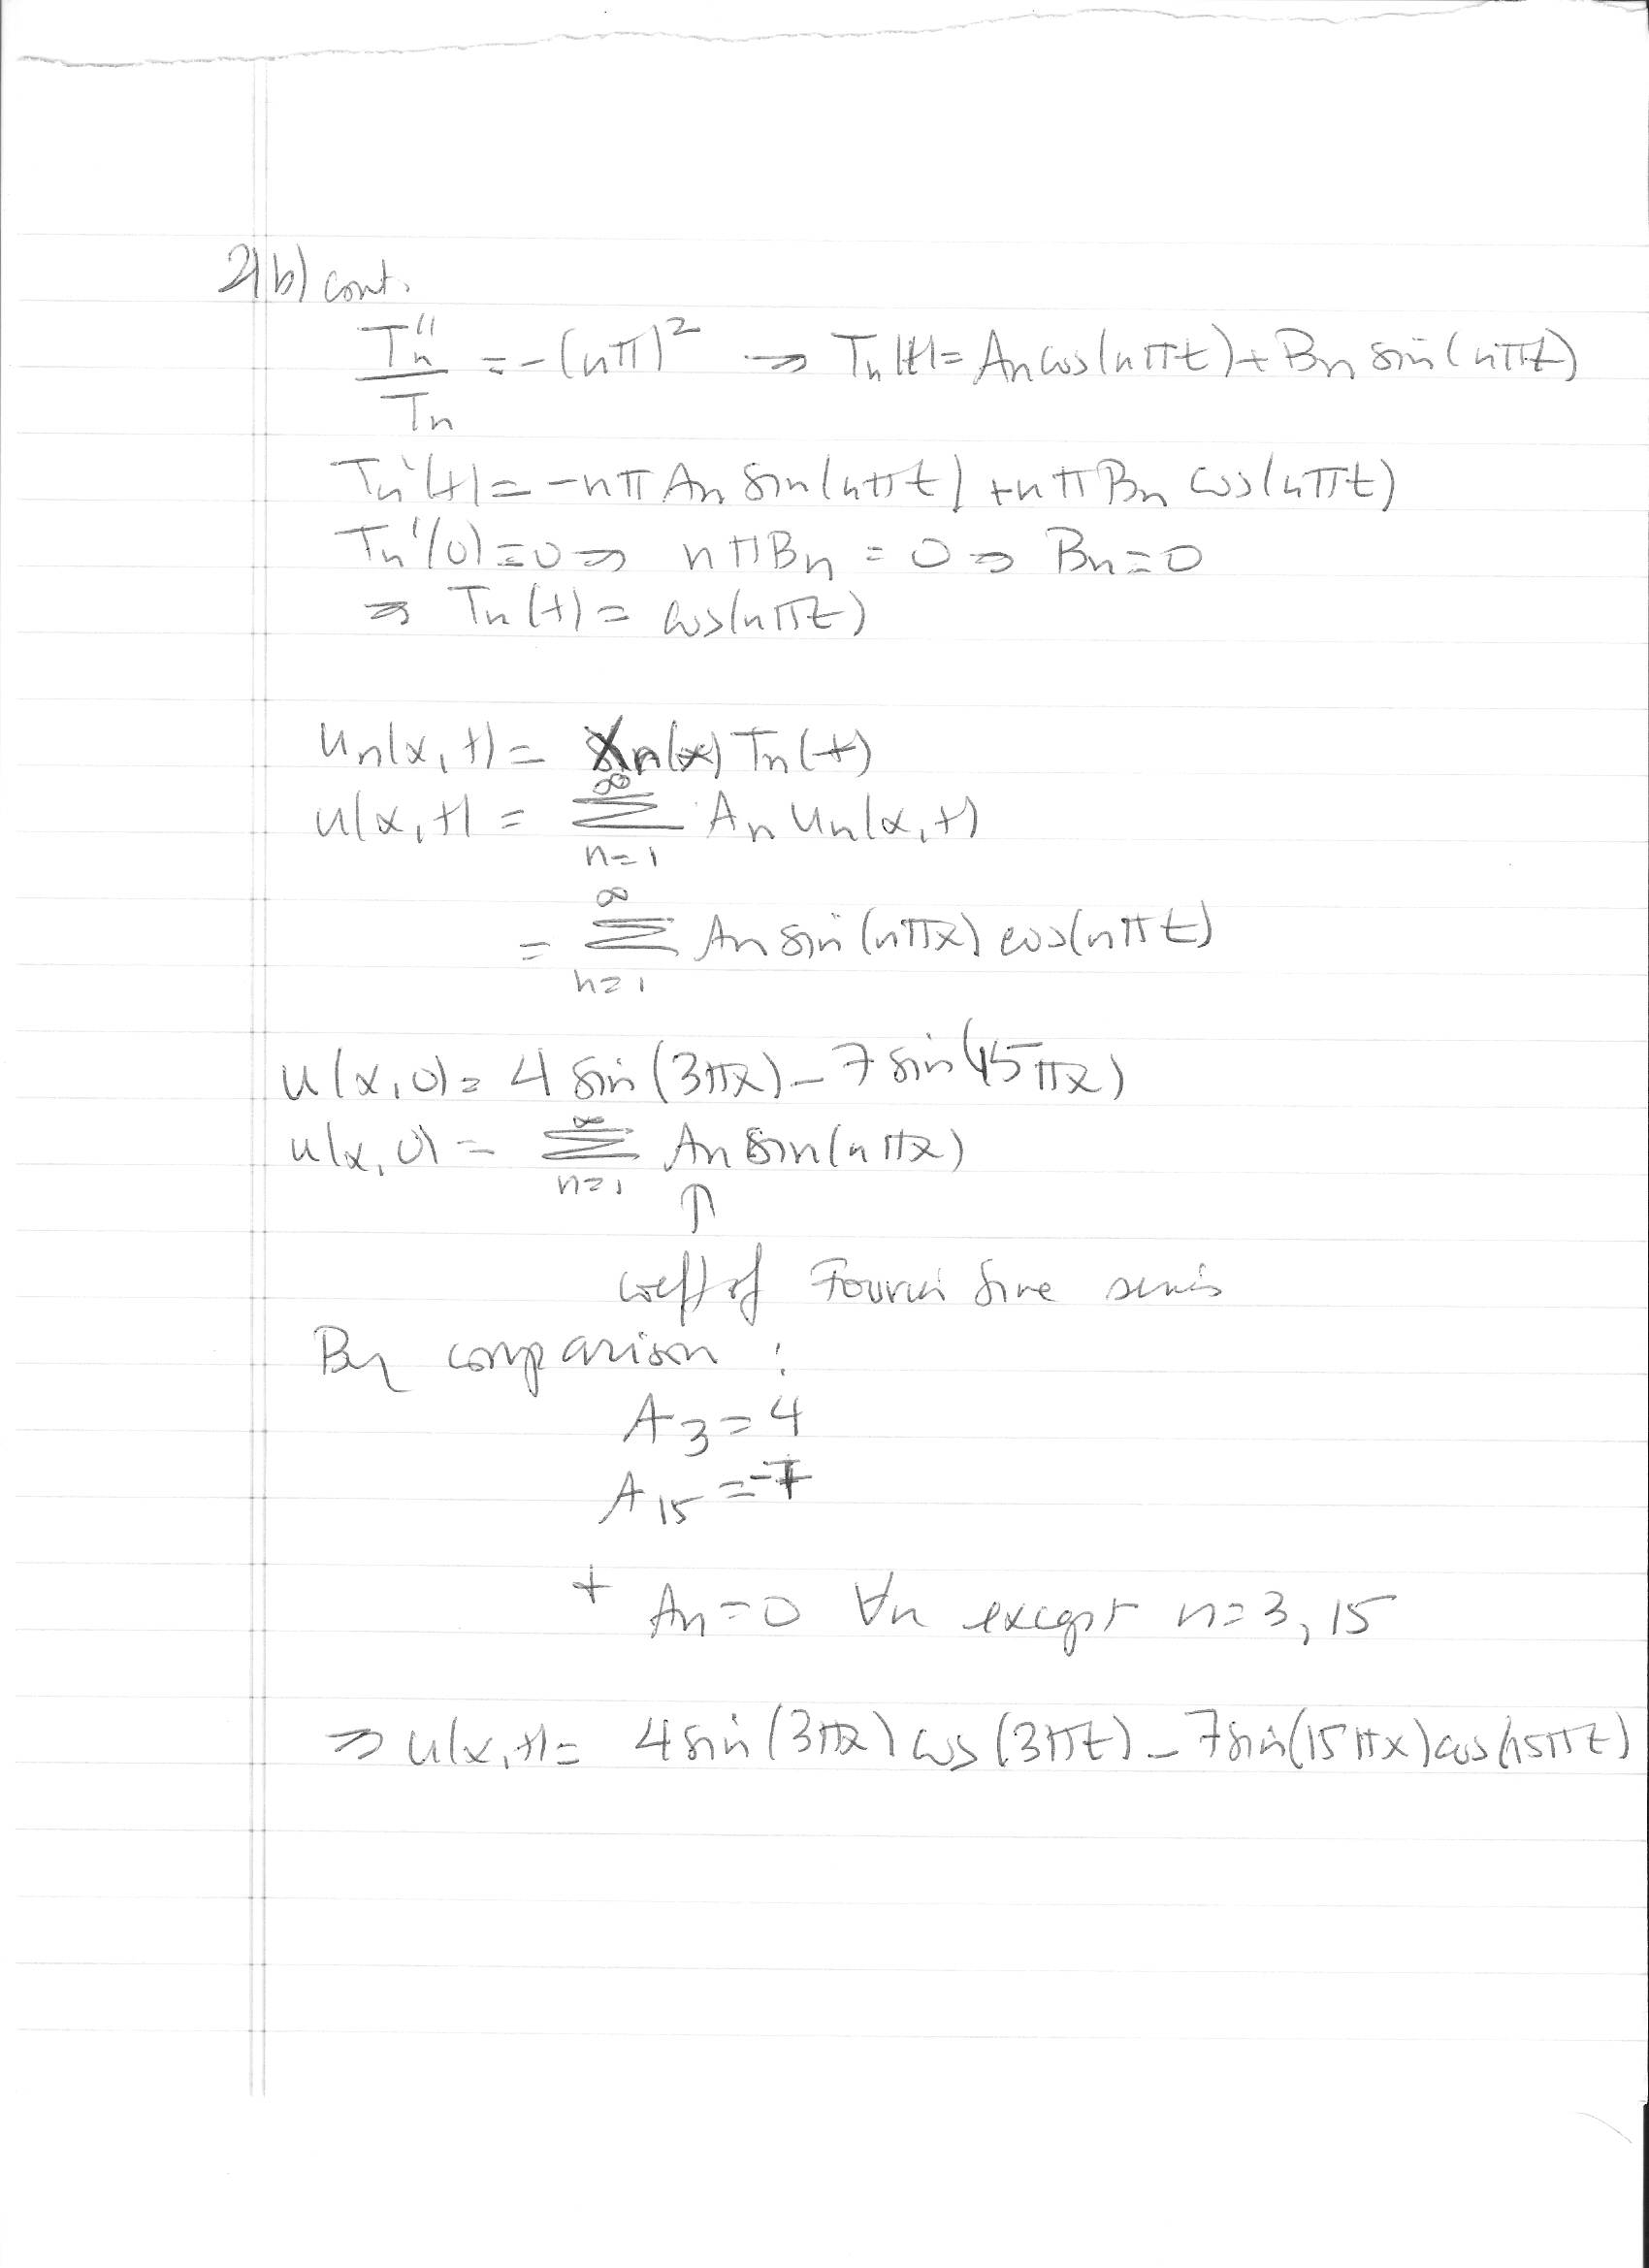 2(b) cont.
Tn''/Tn = -(nπ)² → Tn(t) = An cos(nπt) + Bn sin(nπt)
Tn'(t) = -nπ An sin(nπt) + nπ Bn cos(nπt)
Tn'(0) = 0 ⇒ nπBn = 0 ⇒ Bn = 0
⇒ Tn(t) = cos(nπt)
un(x,t) = Xn(x) Tn(t)
u(x,t) = ∑_{n=1}^{∞} An un(x,t)
= ∑_{n=1}^{∞} An sin(nπx) cos(nπt)
u(x,0) = 4 sin(3πx) - 7 sin(15πx)
u(x,0) = ∑_{n=1}^{∞} An sin(nπx)
↑
coeff of Fourier sine series
By comparison :
A3 = 4
A15 = -7
+ An = 0 ∀n except n = 3, 15
⇒ u(x,t) = 4 sin(3πx) cos(3πt) - 7 sin(15πx) cos(15πt)